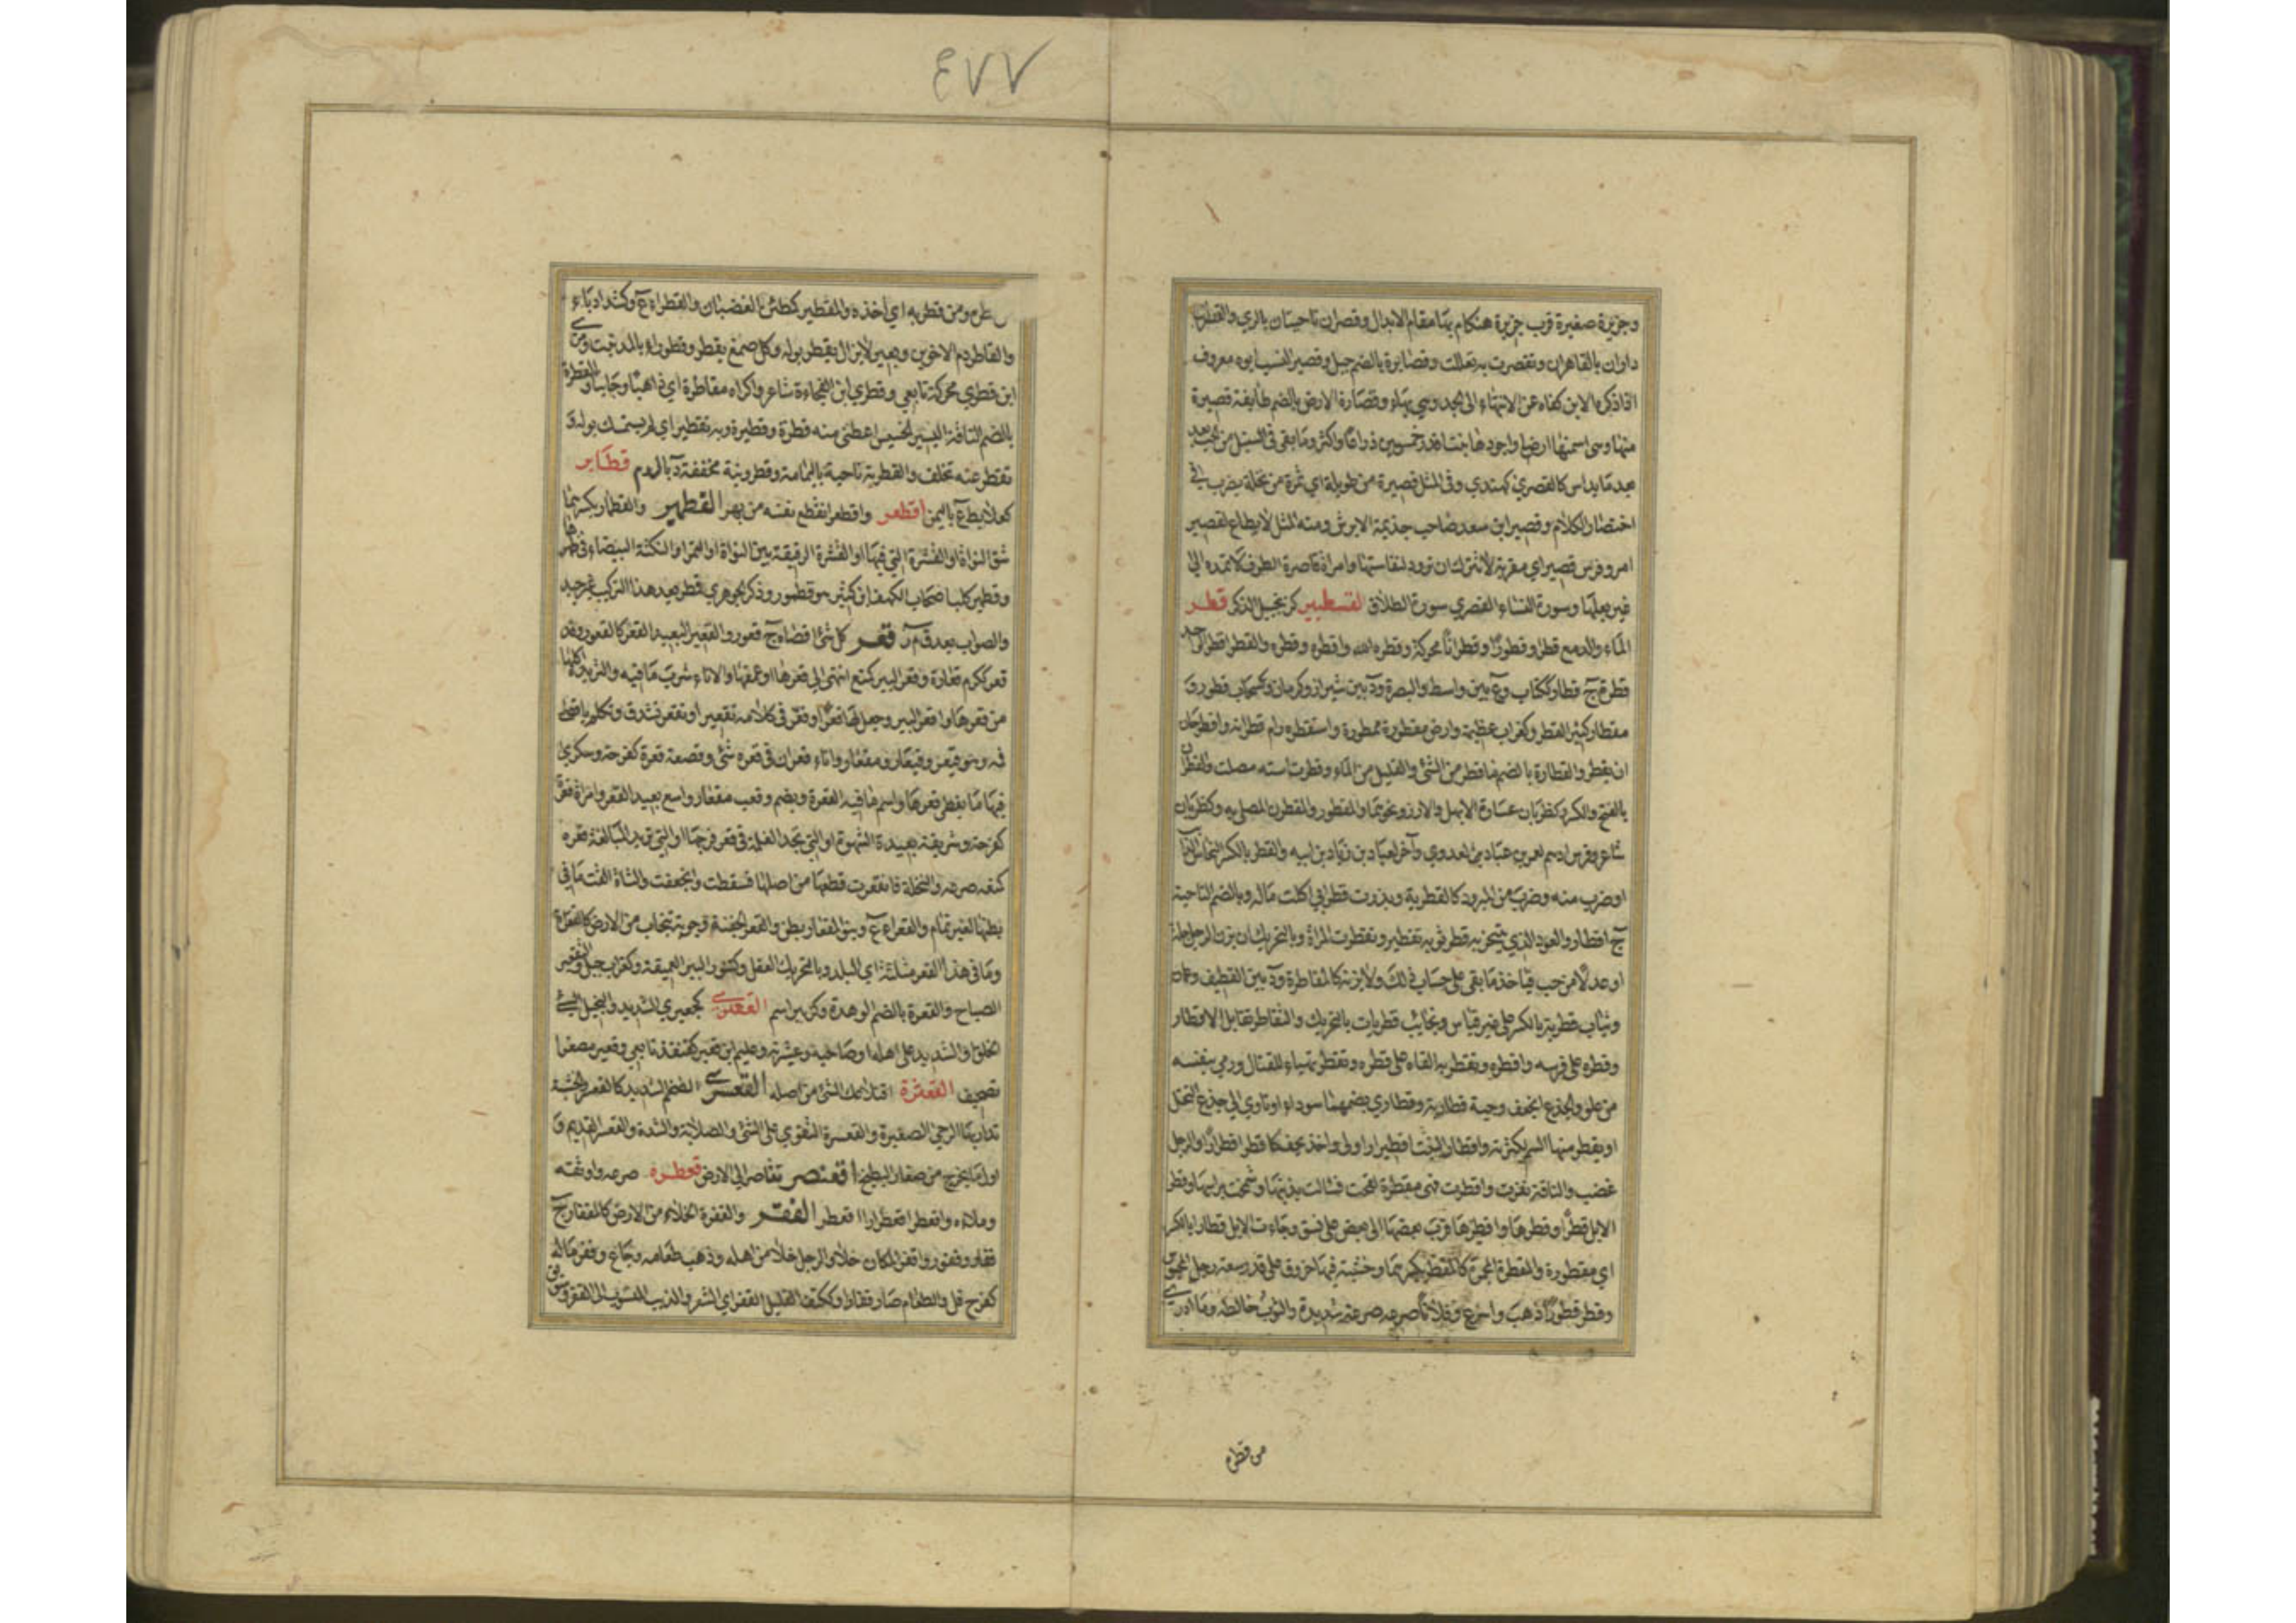 ٤٧٧
وجزيرة صغيرة قرب جزيرة هنكام بها مقام الابدال وقصران ناحيتان بالري والقصران
داران بالقاهرة وتقصرت به تعللت وقصايرة بالضم جبل وقصير النسب ابوه معروف
اذا ذكره الابن كفاه عن الانتماء الى الجد وهي بهاء وقصارة الارض بالضم طايفة قصيرة
منها وهي اسمنها ارضا واجودها نبتا قدر خمسين ذراعا واكثر وما بقي في السنبل من الحب بعد
بعد ما يداس كالقصري كهندي وفي المثل قصيرة من طويلة اي تمرة من نخلة يضرب في
اختصار الكلام وقصير ابن سعد صاحب جذيمة الابرش ومنه المثل لا يطاع لقصير
امر وفرس قصير اي مقربة لا تترك ان ترود لنفاستها وامراة قاصرة الطرف لا تمده الى
غير بعلها وسورة النساء القصري سورة الطلاق القسطبير كزنجبيل الذكر قطر
الماء والدمع قطرا وقطورا وقطرانا محركة وقطره الله واقطره وقطره والقطر ما قطر الواحدة
قطرة ج قطار ككتاب وع بين واسط والبصرة ود بين شيراز وكرمان وكسحاب قطور و
مقطار كثير القطر وكغراب عظيمة وارض مقطورة ممطورة واستقطره رام قطرانه واقطر حان
ان يقطر والقطارة بالضم ما قطر من الشئ والقليل من الماء وقطرت استه مصلت والقطران
بالفتح والكسر وكظربان عصارة الابهل والارز ونحوهما والمقطور والمقطرن المطلي به وكظربان
شاعر وفرس ادهم لعمر بن عباد العدوي وآخر لعباد بن زياد بن ابيه والقطر بالكسر النحاس الذائب
او ضرب منه وضرب من البرود كالقطرية وبذرت قطري اكلت ماله وبالضم الناحية
ج اقطار والعود الذي يتبخر به قطر ثوبه تقطيرا وتقطرت المراة وبالتحريك ان يزن الرجل جلة
او عدلا من حب فياخذ ما بقي على حساب ذلك ولا يزنه كالمقاطرة ود بين القطيف وعمان
وثياب قطرية بالكسر على غير قياس ونجائب قطريات بالتحريك والتقاطر تقابل الاقطار
وقطره على فرسه واقطره وتقطر به القاه على قطره وتقطر تهياء للقتال ورمي بنفسه
من علو والجذع انجعف وحية قطارية وقطاري بضمهما سوداء او تاوي الى جذع النخل
او يقطر منها السم لكثرته واقطار النبت اقطيرارا ولى واخذ يجف كاقطر اقطرارا والرجل
غضب والناقة نفرت واقطرت فهي مقطرة لقحت فشالت بذنبها وشمخت براسها وقطر
الابل قطرا وقطرها واقطرها قرب بعضها الى بعض على نسق وجاءت الابل قطارا بالكسر
اي مقطورة والمقطرة المجمرة كالمقطر بكسرهما وخشبة فيها خروق على قدر سعة رجل المحبوس
وقطر قطورا ذهب واسرع وفلانا صرعه صرعة شديدة والثوب خاطه وما ادري
من قطره
من قطره ومن قطر به اي اخذه والمقطير كمطئن الغضبان والقطراء ع وكشداد ماء
والقاطر دم الاخوين وبعير لا يزال يقطر بوله وكل صمغ يقطر وقطوراء بالمد نبت و
ابن قطري محركة تابعي وقطري ابن الفجاءة شاعر واكراه مقاطرة اي ذاهبا وجايبا والقطرة
بالضم التافه اليسير الخسيس اعطني منه قطرة وقطيرة وبه تقطير اي لم يستمسك بوله و
تقطر عنه تخلف والقطرية ناحية باليمامة وقطرونية مخففة د بالروم قطابر
كعلابط ع باليمن اقطعر واقطعر انقطع نفسه من بهر القطمير والقطمار بكسرهما
شق النواة او القشرة التي فيها او القشرة الرقيقة بين النواة والتمرة او النكتة البيضاء في ظهرها
وقطمير كلب اصحاب الكهف
والصواب بعد ق م ر قعر كل شئ اقصاه ج قعور والقعير البعيد القعر كالقعور وقد
قعر ككرم قعارة وقعر البير كمنع انتهى الى قعرها او عمقها والاناء شرب ما فيه والثريد اكلها
من قعرها واقعر البير وجعل لها قعرا وقعر في كلامه تقعيرا وتقعر تشدق وتكلم باقصى
فمه وهو قيعر وقيعار ومقعار واناء قعران في قعره شئ وقصعة قعرة كفرحة وسكرى
فيها ما يغطي قعرها واسم ما فيه القعرة ويضم وقعب مقعار واسع بعيد القعر وامراة قعرة
كفرحة وشريفة بعيدة الشهوة او التي تجد الغلمة في قعر فرجها او التي تريد المبالغة وقعره
كمنعه صرعه والنخلة فانقعرت قطعها من اصلها فسقطت وانجعفت والشاة القت ما في
بطنها لغير تمام والقعراء ع وبنو المقعار بطن والقعر الجفنة وجوبة تنجاب من الارض كالقعرة
وما في هذا القعر مثله اي البلد وبالتحريك العقل وكتنور البير العميقة وكغراب جبل والتقعير
الصياح والقعرة بالضم الوهدة وكزبير اسم القعبري كجعبري الشديد والبخيل السئ
الخلق والشديد على اهله او صاحبه وعشيرته وعليم ابن قعبر كقنفذ تابعي وقعير مصغرا
تصحيف القعثرة اقتلاعك الشئ من اصله القعسري الضخم الشديد كالقعسر والخشبة
تدار بها الرحى الصغيرة والقعسرة التقوي على الشئ والصلابة والشدة والقعسر القديم و
اول ما يخرج من صغار البطيخ اقعنصر تقاصر الى الارض قعطره صرعه واوثقه
وملاءه واقعطر اقعطرارا اقعطر القفر والقفرة الخلاء من الارض كالمقفار ج
قفار وقفور واقفر المكان خلا والرجل خلا من اهله وذهب طعامه وجاع وقفر ماله
كفرح قل والطعام صار قفارا وككتف القليل القفر اي الشعر والذيب المنسوب الى القفر وسويق